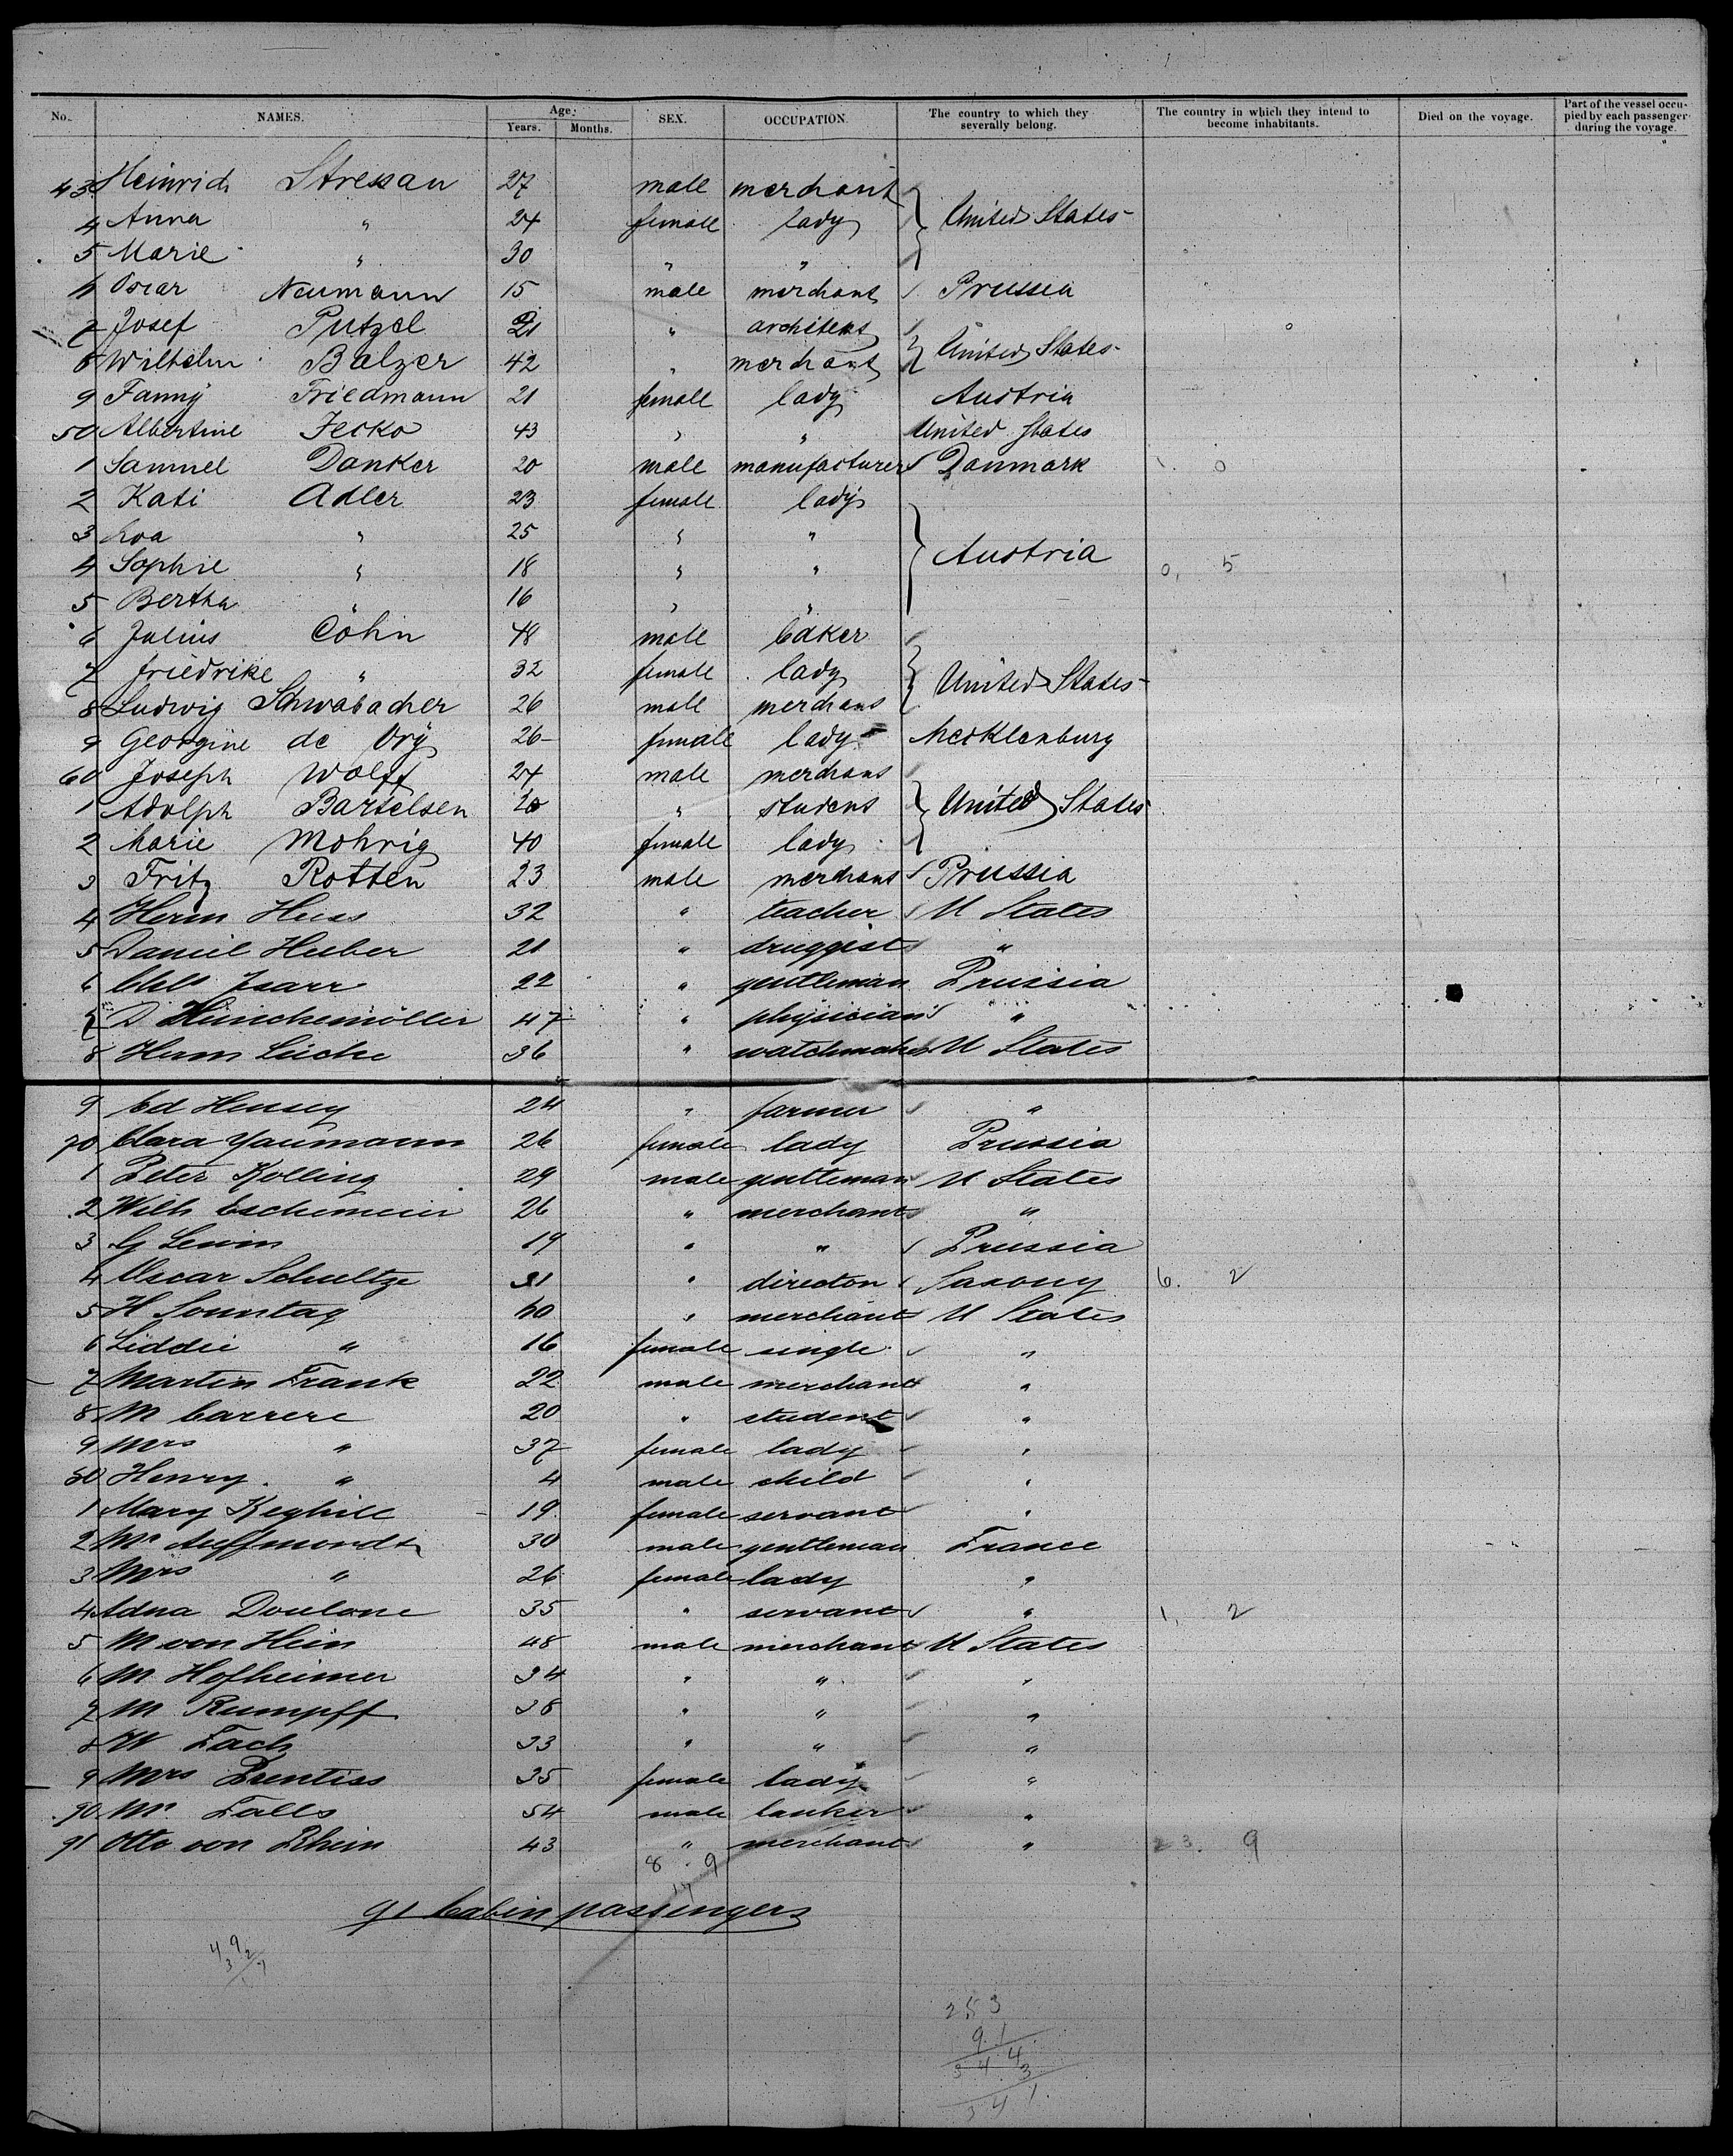 No. NAMES. Age. Years. Months. SEX. OCCUPATION. The country to which they severally belong. The country in which they intend to become inhabitants. Died on the voyage. Part of the vessel occupied by each passenger during the voyage.
43 Heinrich Stressau 27 male merchant
4 Anna " 24 female lady } United States
5 Marie " 30 " "
6 Oscar Neumann 15 male merchant Prussia
7 Josef Putzel 21 " architekt
8 Wilhelm Balzer 42 " merchant } United States
9 Fanny Friedmann 21 female lady Austria
50 Albertine Jecko 43 " " United States
1 Samuel Danker 20 male manufacturer Danmark 1. 0
2 Kati Adler 23 female lady
3 " 25 " "
4 Sophie " 18 " " } Austria 0, 5
5 Bertha " 16 " "
6 Julius Cohn 48 male baker
7 Friedrike " 32 female lady } United States
8 Ludwig Schwabacher 26 male merchant
9 Georgine de Vrÿ 26 female lady Mecklenburg
60 Joseph Wolff 24 male merchant
1 Adolph Bartelsen 20 " student } United States
2 Marie Mohrig 40 female lady
3 Fritz Rotten 23 male merchant Prussia
4 Herm Huss 32 " teacher U States
5 Daniel Huber 21 " druggist "
6 Isarr 22 " gentleman Prussia
7 D Hünchemöller 47 " physician "
8 Herm Lücke 36 " watchmaker U States
9 Ed Hensey 24 " farmer "
70 Clara Naumann 26 female lady Prussia
1 Peter Kolling 29 male gentleman U States
2 Wilh Eschemeier 26 " merchant "
3 G Lewin 19 " " Prussia
4 Oscar Schultze 31 " director Saxony 6. 2
5 H Sonntag 60 " merchant U States
6 Liddie " 16 female single "
7 Martin Frank 22 male merchant "
8 M Carrere 20 " student "
9 Mrs " 37 female lady "
80 Henry " 4 male child "
1 Mary Keghill 19 female servant "
2 Mr Auffmordt 30 male gentleman France
3 Mrs " 26 female lady "
4 Adna Doulone 35 " servant " 1, 2
5 M von Hein 48 male merchant U States
6 M Hofheimer 34 " " "
7 M Rumpff 38 " " "
8 W Fach 33 " " "
9 Mrs Prentiss 35 female lady "
90 Mr Falls 54 male banker "
91 Otto von Rhein 43 " merchant " 23. 9
8 . 9
17
91 Cabin passengers
492
253
91
344
3
341